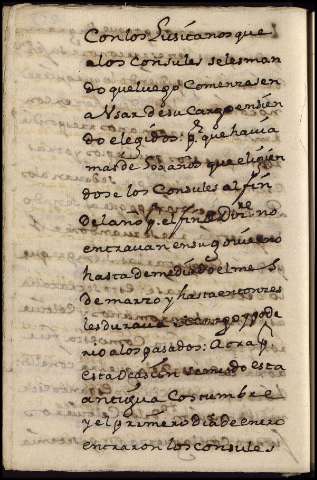 Con los Lusitanos que
a los Consules se les man
do que luego Comenzasen
a Usar de su Cargo en sien
do elegidos: pr̃ que havia
mas de 30 años que eligien
dose los Consules al fin
del año q. es fin de Dizre no
entravan en su govierno
hasta de mediado el mes
de marzo y hasta entonzes
les durava el cargo y pode
rio a los pasados: Aora pr̃
esta Ocasion se mudo esta
antigua Costumbre
y el primero dia de enero
entraron los Consules